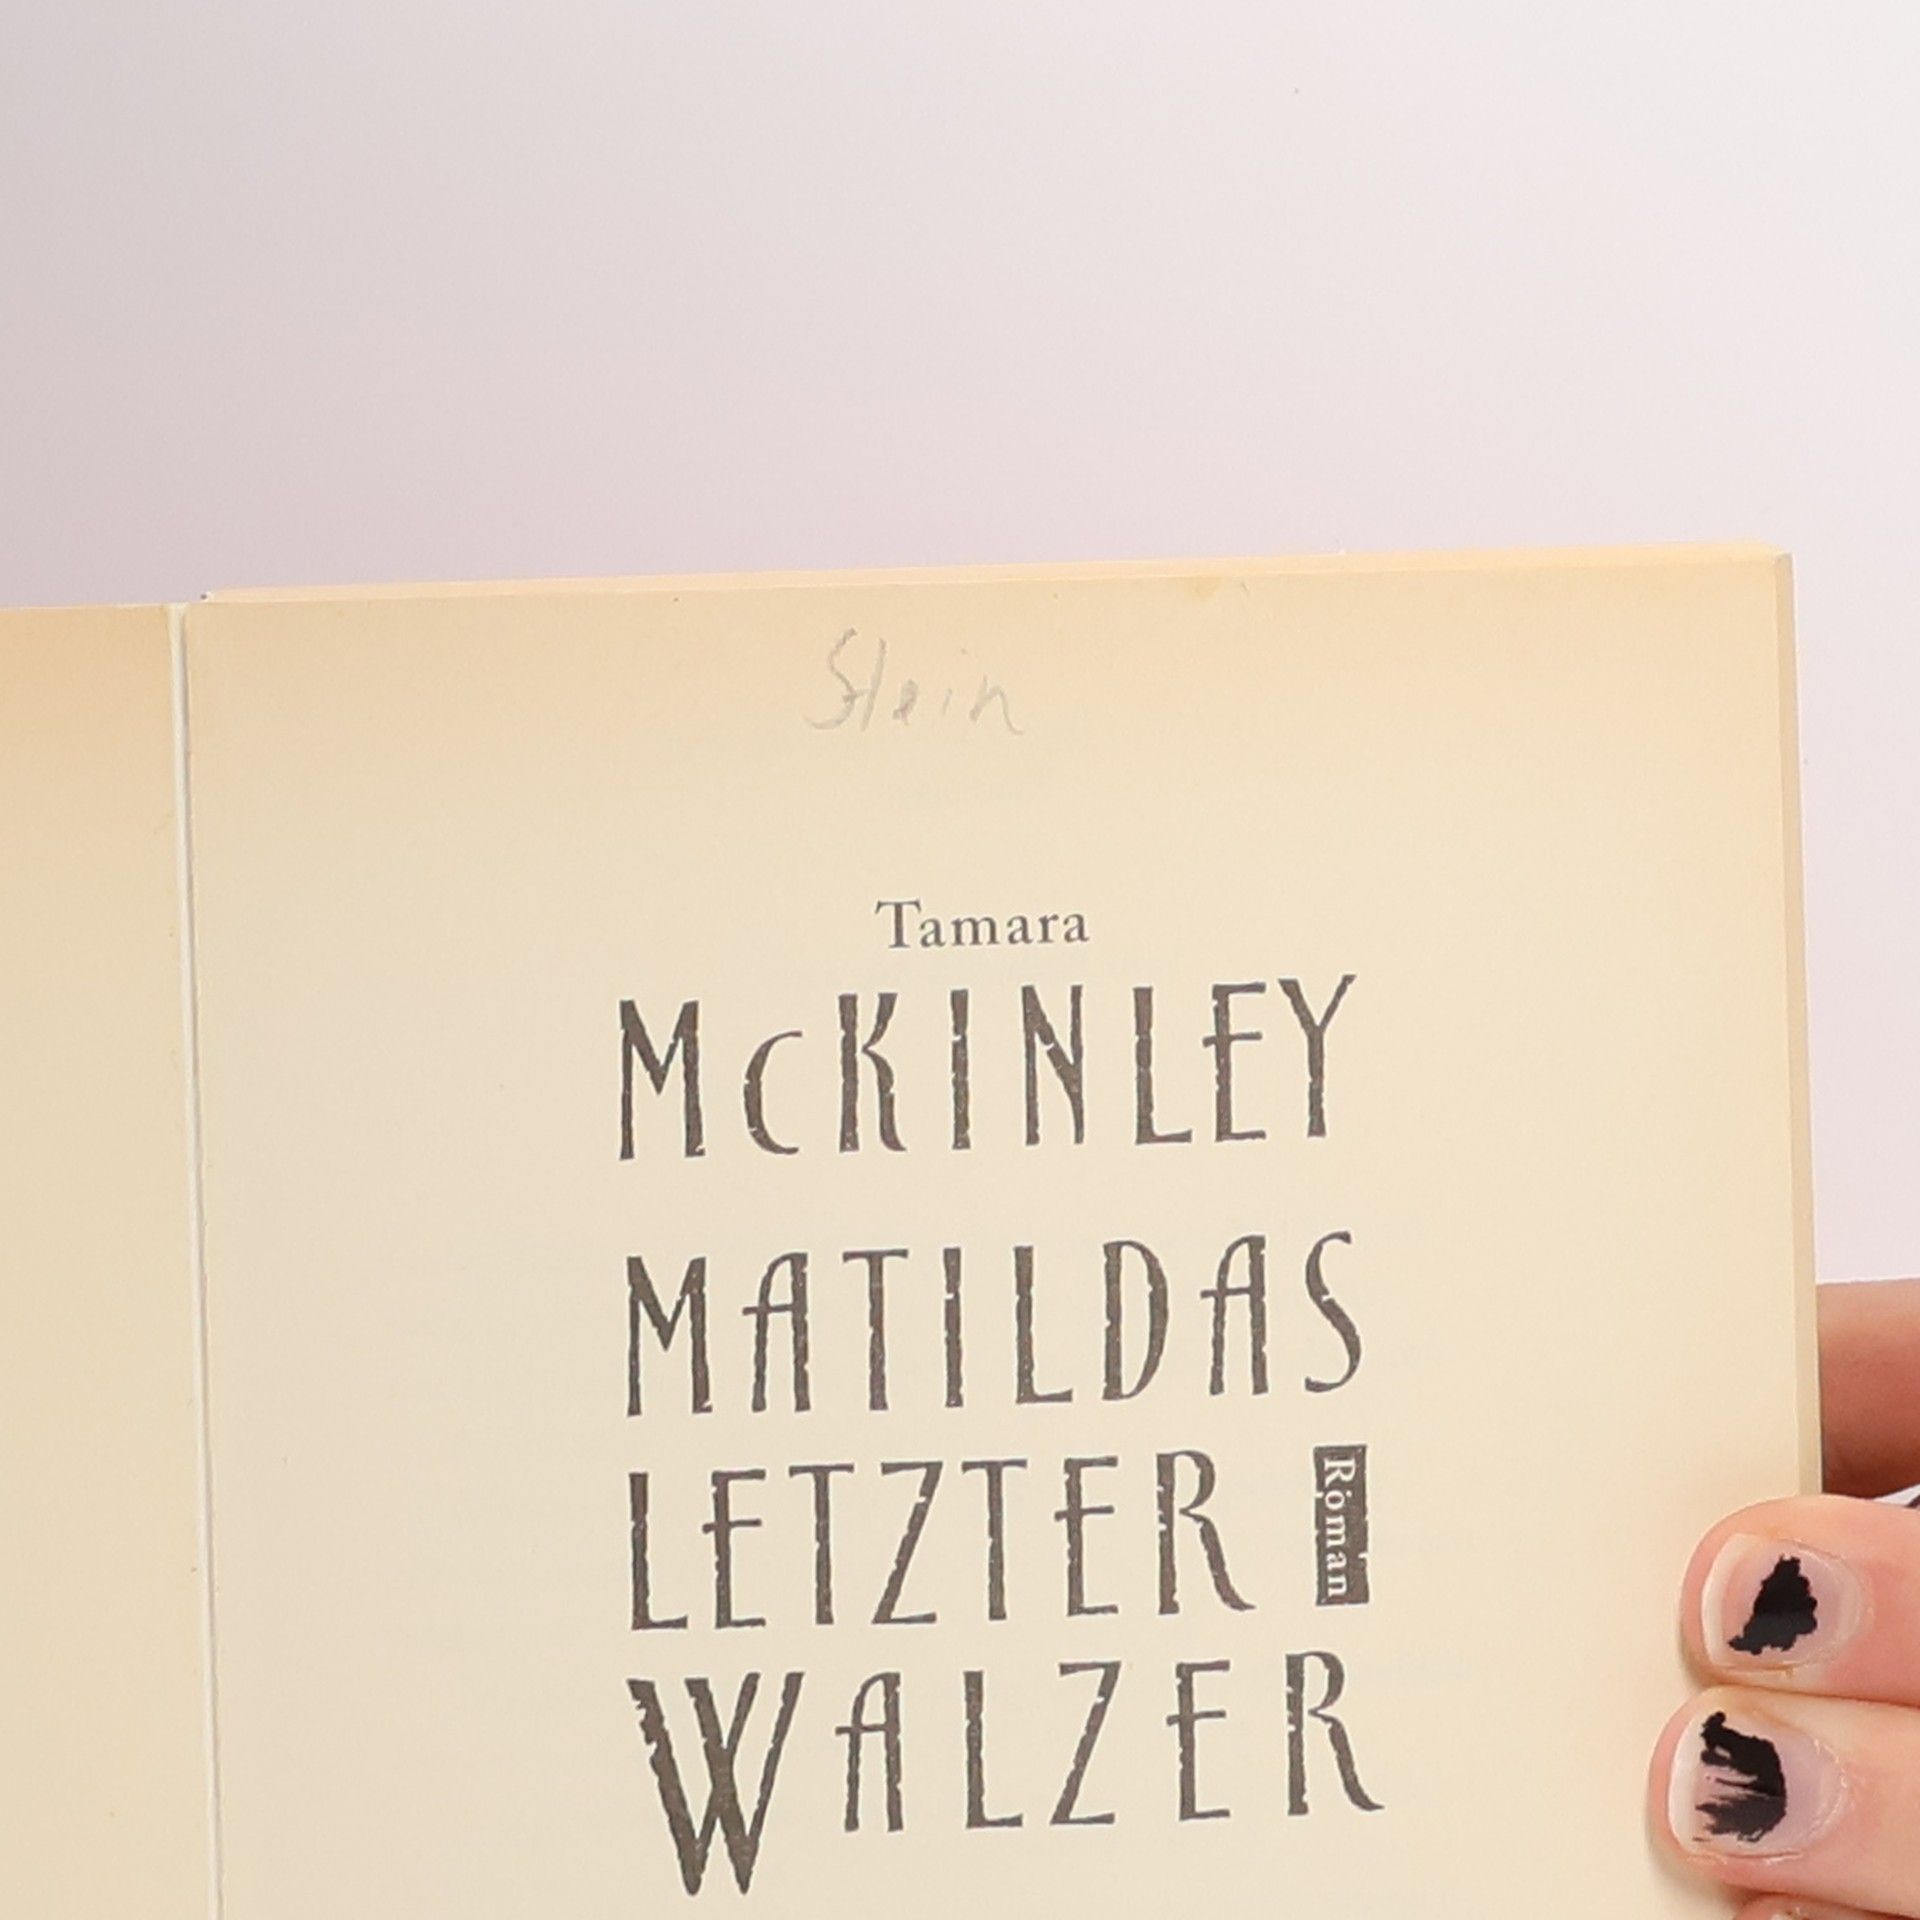 Stein
Tamara
McKINLEY
MATILDAS
LETZTER Roman
WALZER